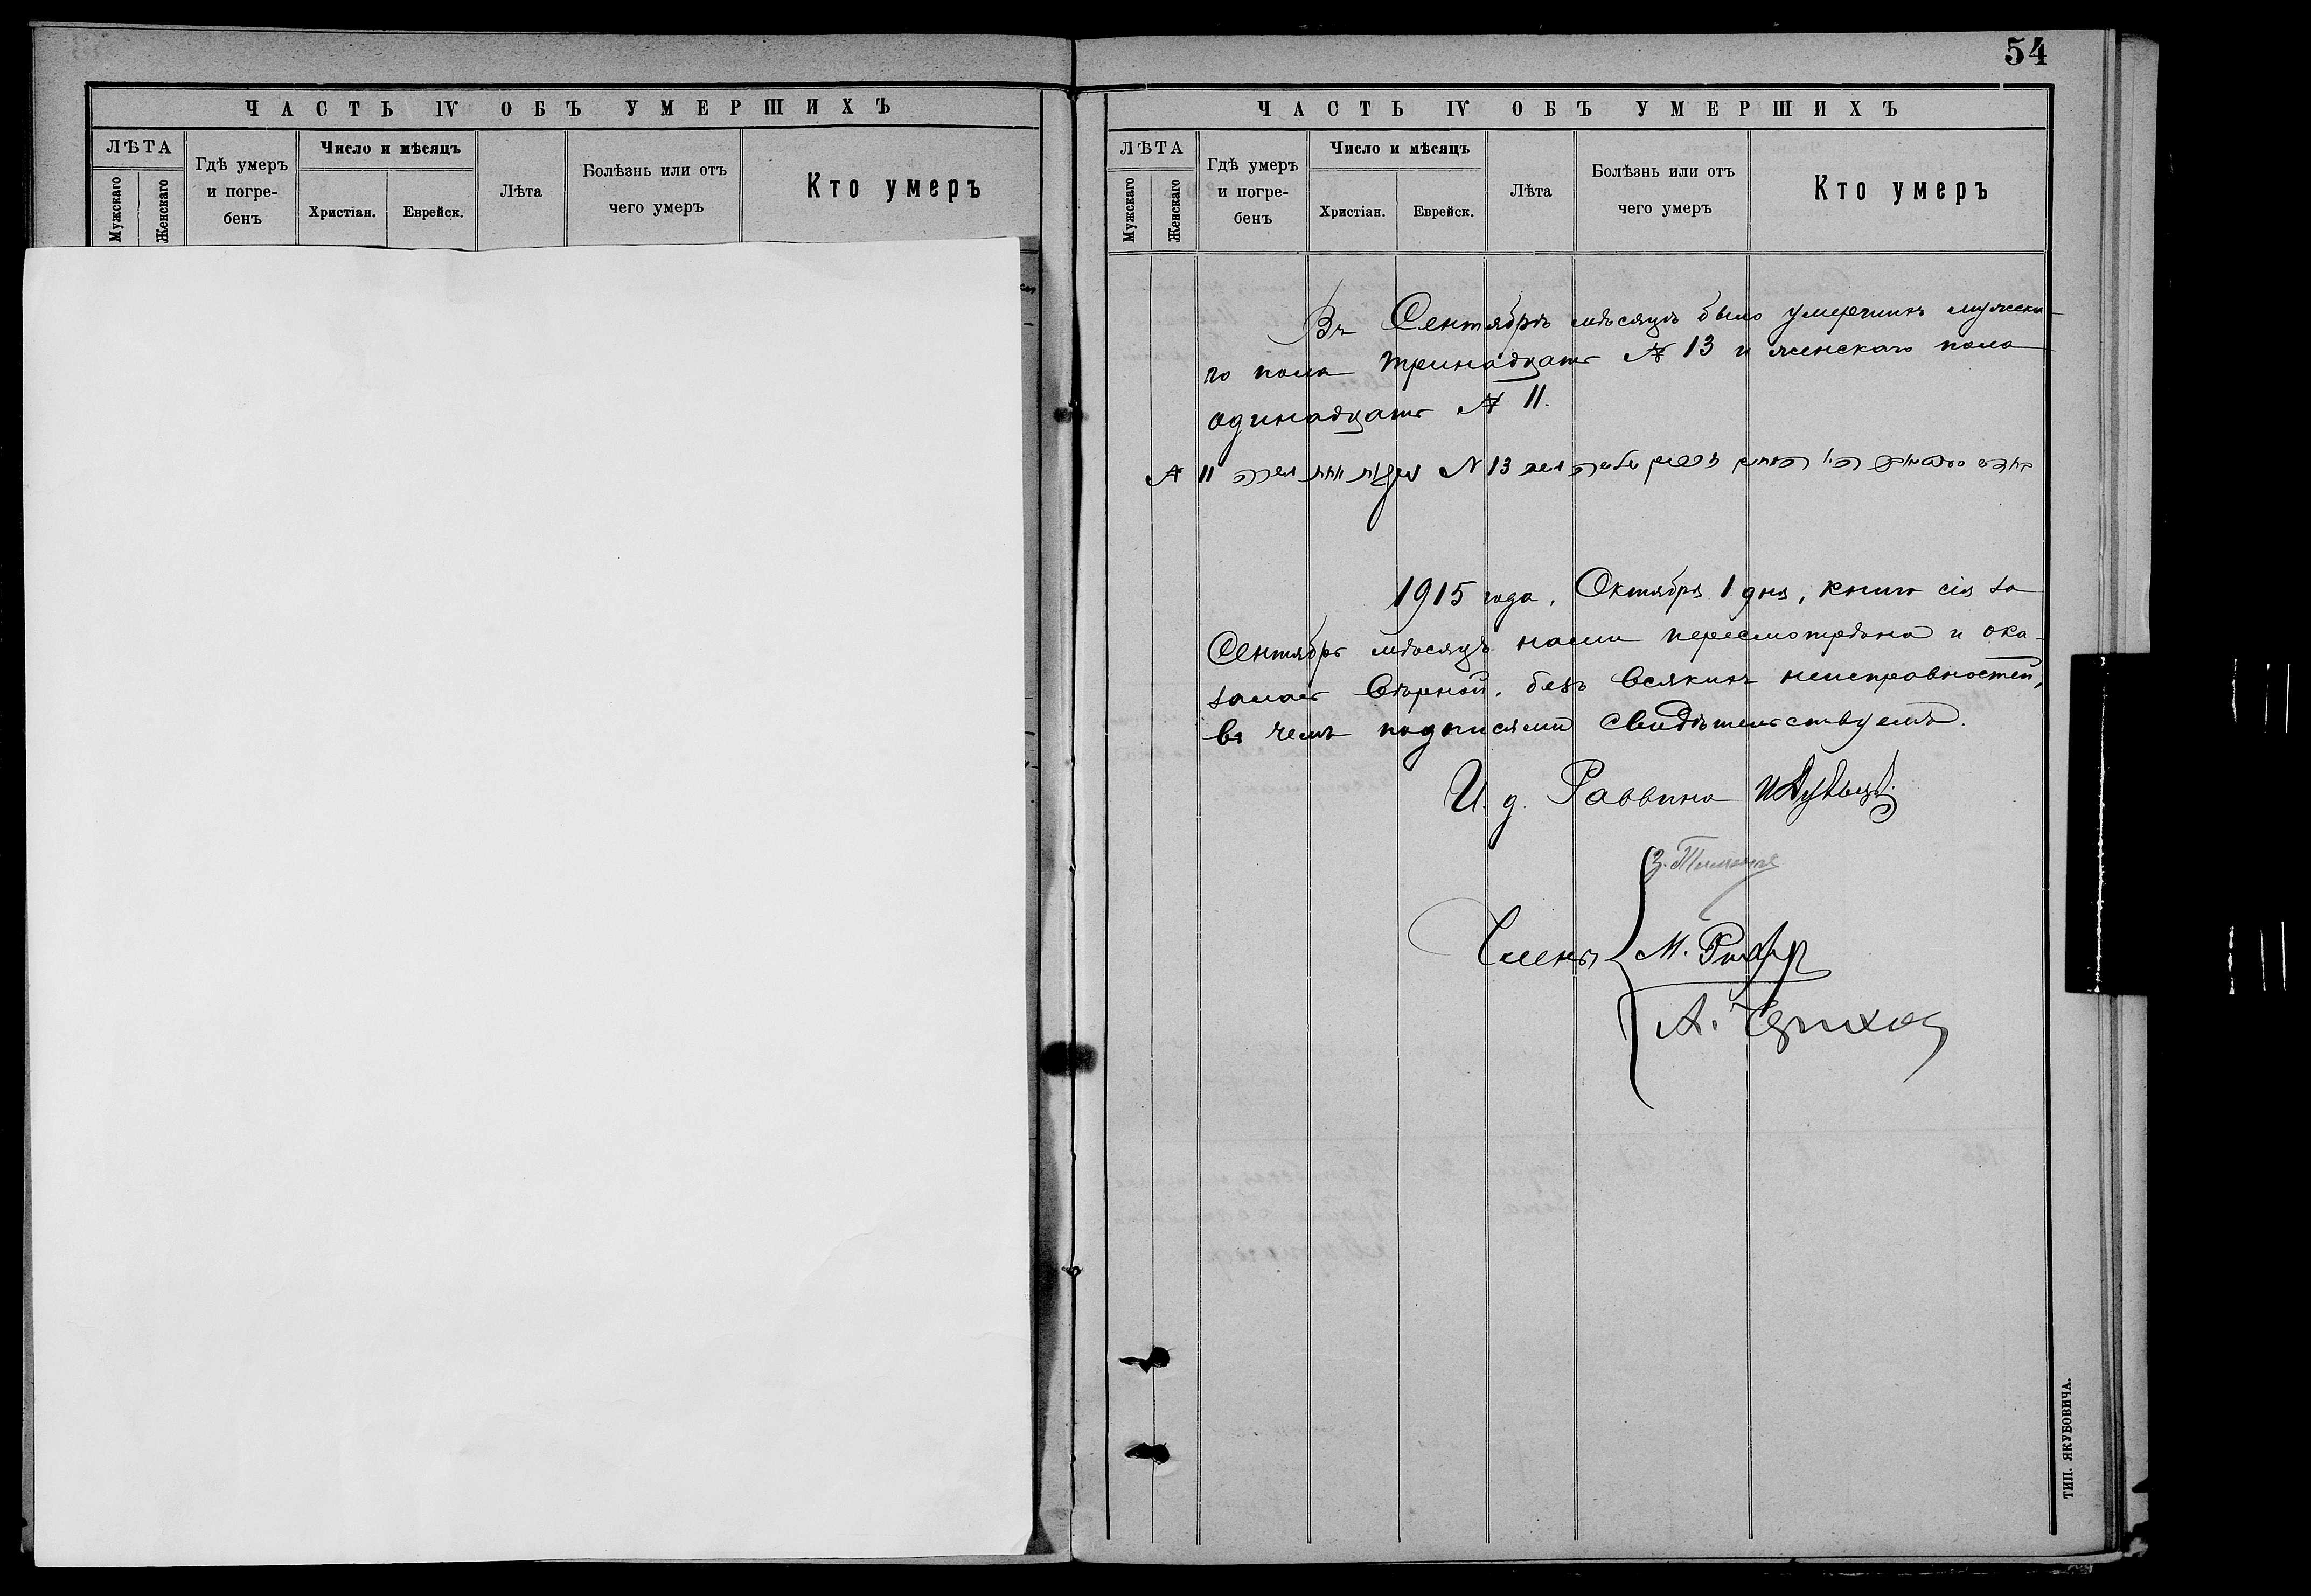 ЧАСТЬ IV ОБЪ УМЕРШИХЪ
ЛѢТА
Мужскаго
Женскаго
Гдѣ умеръ
и погре-
бенъ
Число и мѣсяцъ
Христіан.
Еврейск.
Лѣта
Болѣзнь или отъ
чего умеръ
Кто умеръ
54
ЧАСТЬ IV ОБЪ УМЕРШИХЪ
ЛѢТА
Мужскаго
Женскаго
Гдѣ умеръ
и погре-
бенъ
Число и мѣсяцъ
Христіан.
Еврейск.
Лѣта
Болѣзнь или отъ
чего умеръ
Кто умеръ
Въ Сентябрѣ мѣсяцѣ было умершихъ мужска-
го пола тринадцать № 13 и женскаго пола
одинадцать № 11.
№ 13
№ 11
1915 года, Октября 1 дня, книга сія за
Сентябрь мѣсяцъ нами пересмотрѣна и ока-
залась вѣрной, безъ всякихъ неисправностей,
въ чемъ подписями свидѣтельствуемъ.
И. д. Раввина
Члены
М.
А.
ТИП. ЯКУБОВИЧА.